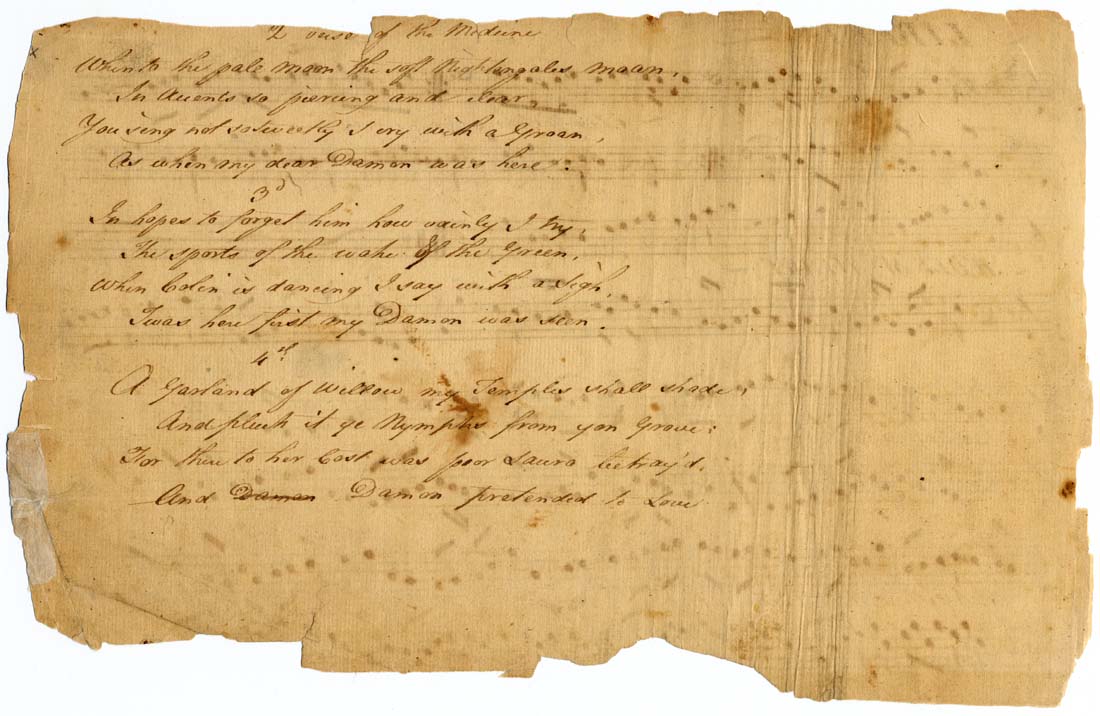 2 verse of the Medcine
When to the pale moon the soft Nightingales moan,
In Accents so piercing and clear,
You sing not so sweetly I cry with a Groan,
As when my dear Damon was here.
3d
In hopes to forget him how vainly I try,
The sports of the wake & the Green,
When Colin is dancing I say with a Sigh,
Twas here first my Damon was seen.
4th
A Garland of Willow my Temples shall shade,
And pluck it ye Nymphs from yon Grove:
For there to her Cost was poor Laura betray'd,
And Damon Damon pretended to Love.